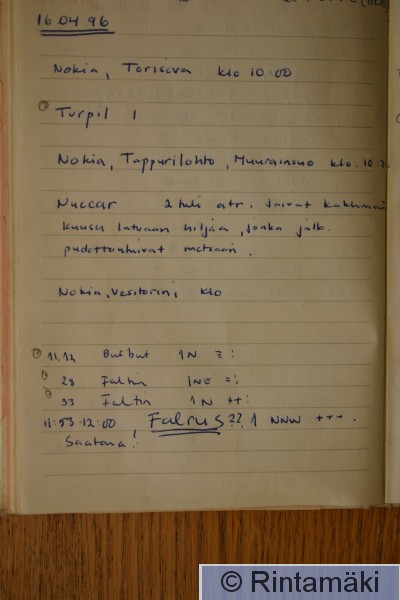 16.04.96
Nokia, Torisova klo 10:00
Turpil 1
Nokia, Tappurilohto, Muurainsuo klo. 10:
Nuccar 2 tuli atr. Jaivat
kuusen latvaan hiljaa, jonka jälk.
pudottautuivat metsään.
Nokia, Vesitorni, klo
11,12 Butbut 1N =:
28 Faltin 1NE =:
33 Faltin 1N ++:
11:53-12:00, Falrus?? 1 NNW +++.
Saatana!
© Rintamäki